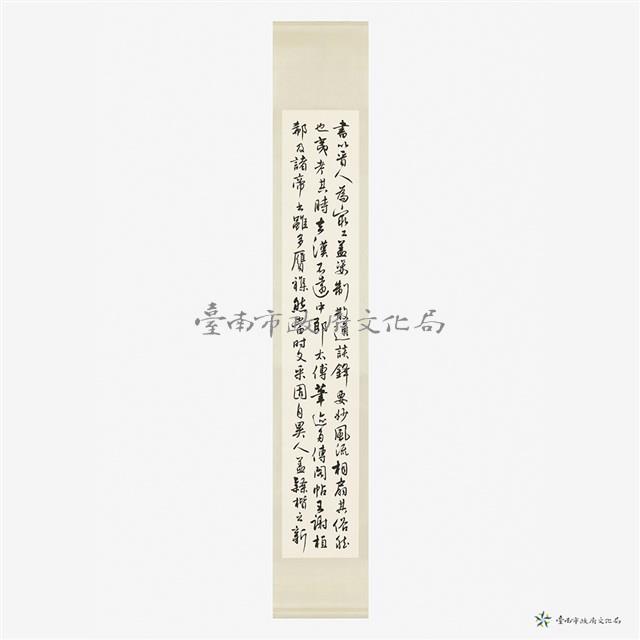 書以晉人為最工蓋姿制散逸談鋒要妙風流相扇其俗然
也夷考其時去漢不遠中郎太傅筆迹多傳閣帖王謝桓
郗及諸帝書雖多贋雜然當時文采固自異人蓋隸楷之新
臺南市政府文化局
臺南市政府文化局